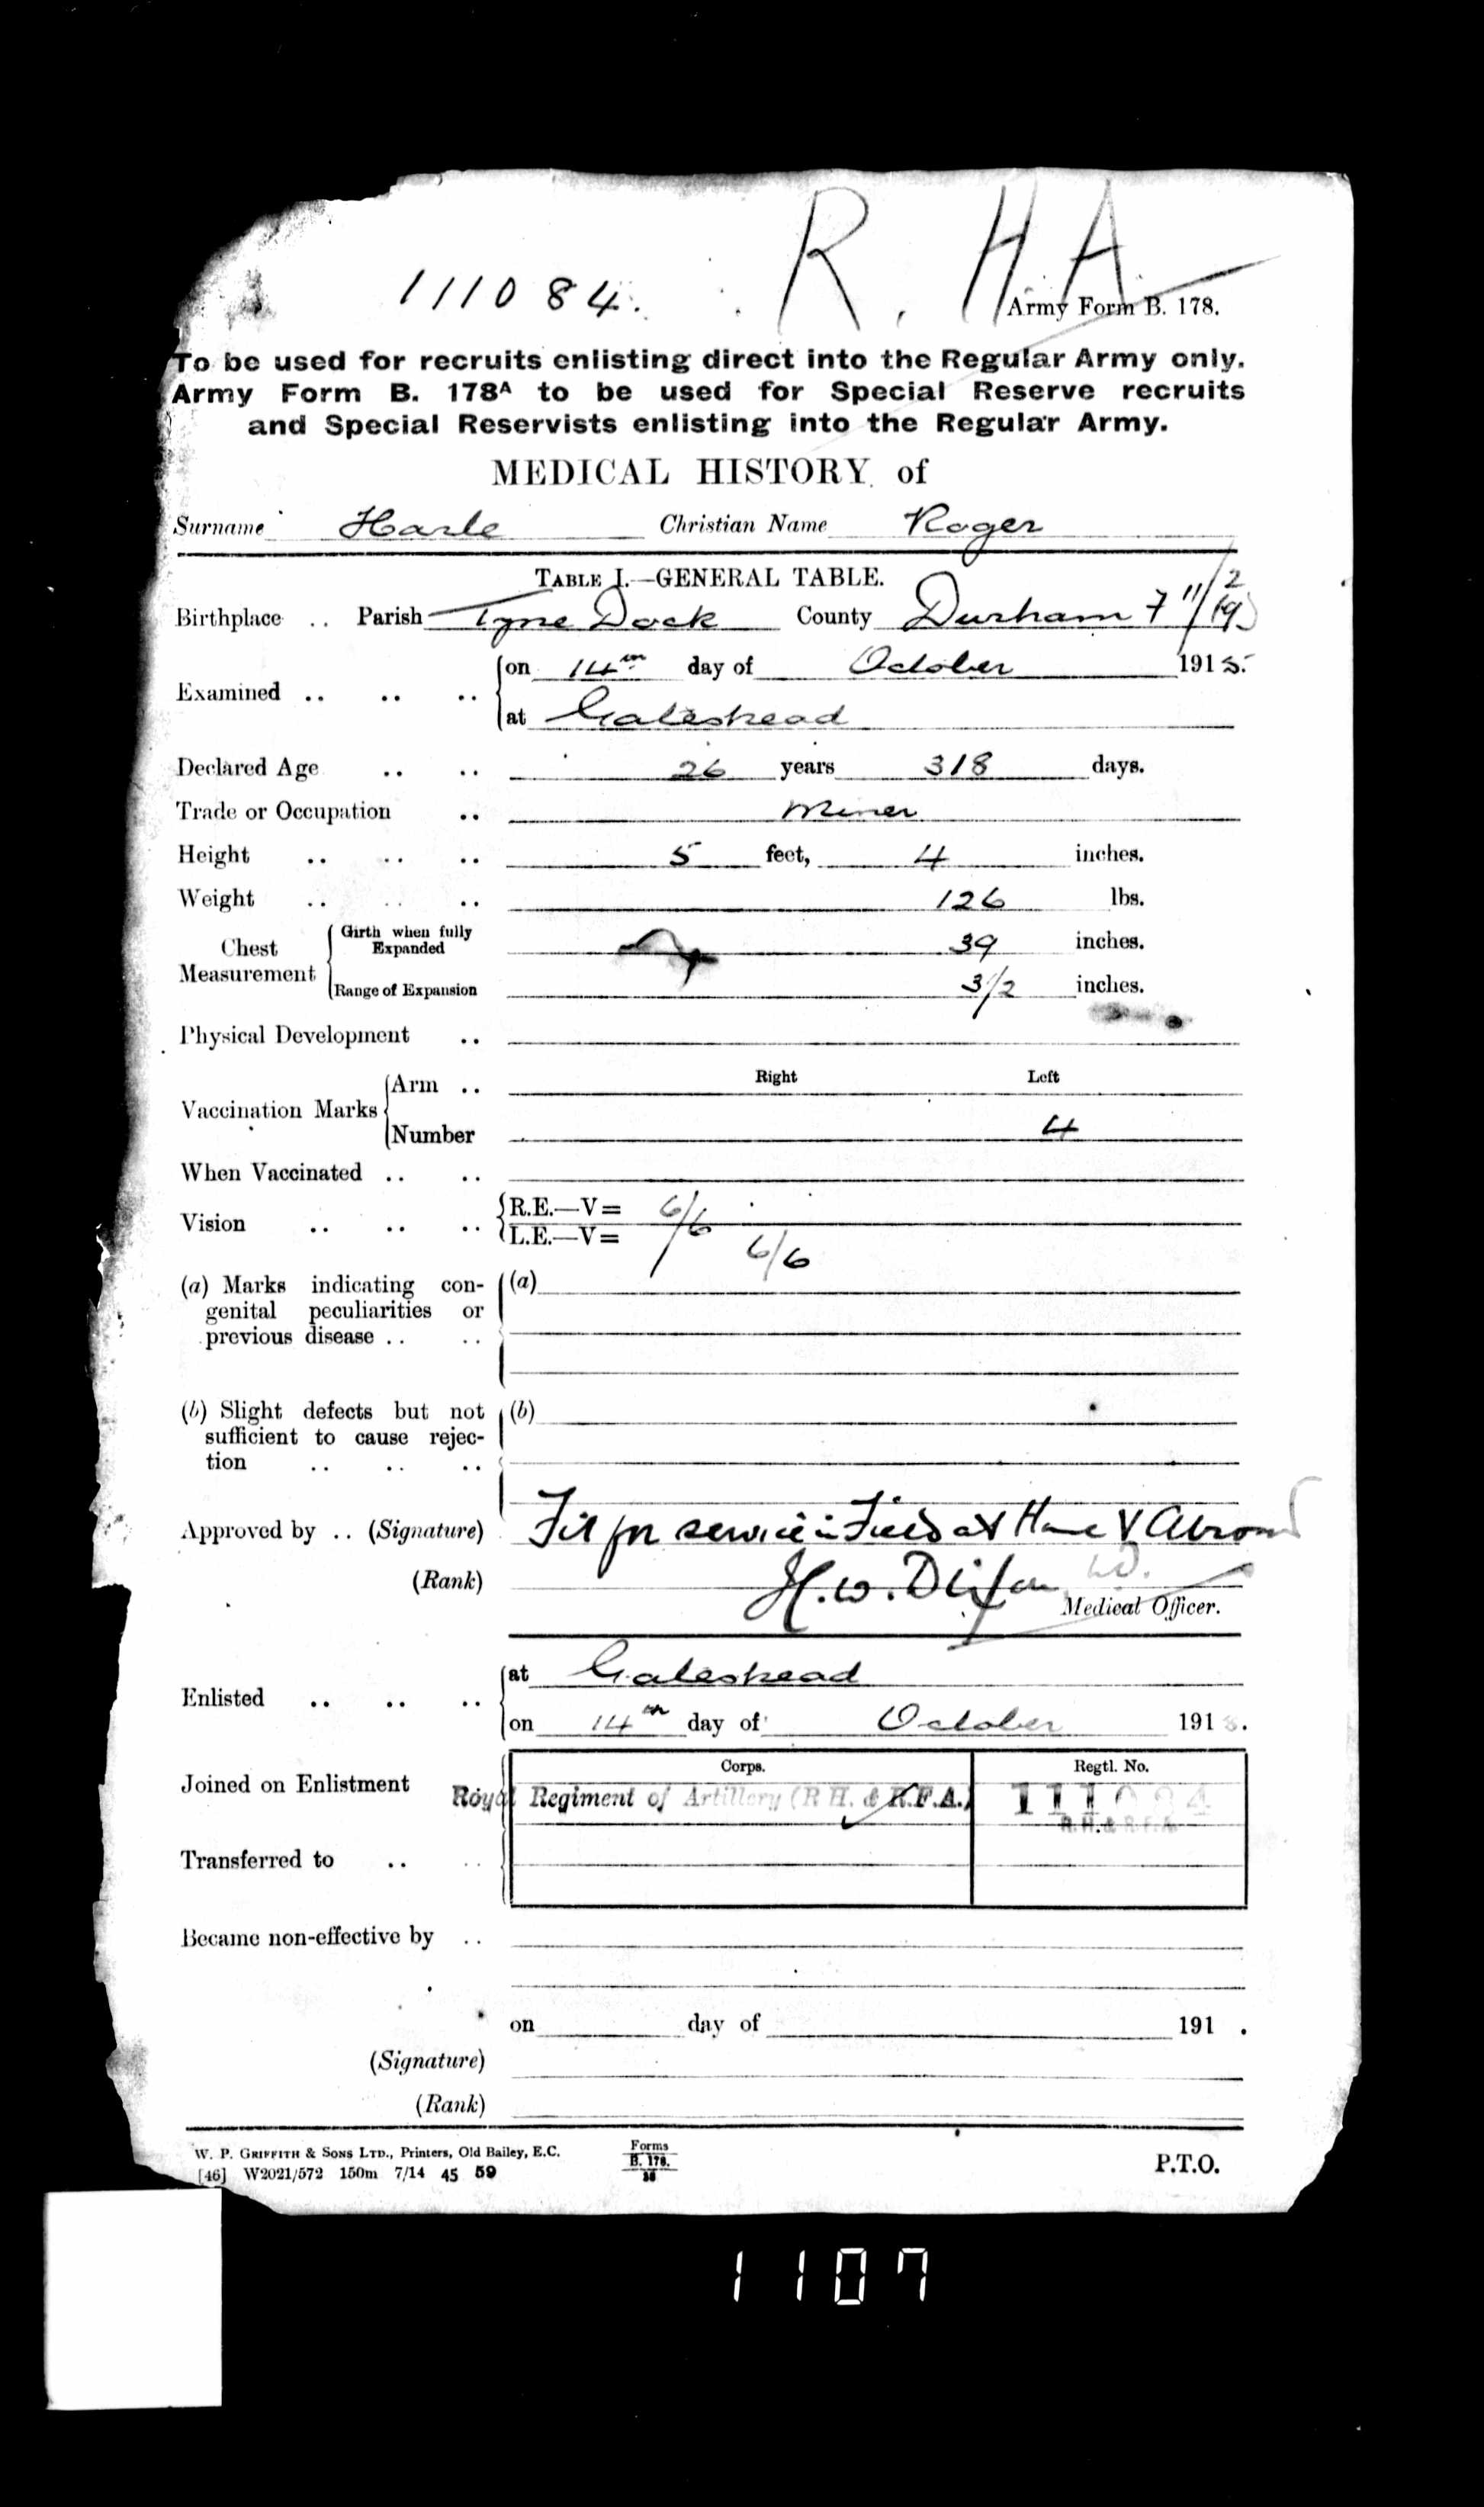 R. H. A.
111084.
Army Form B. 178.
To be used for recruits enlisting direct into the Regular Army only.
Army Form B. 178A to be used for Special Reserve recruits
and Special Reservists enlisting into the Regular Army.
MEDICAL HISTORY of
Surname Harle Christian Name Roger
TABLE I.—GENERAL TABLE.
Birthplace .. Parish Tyne Dock County Durham
Examined .. .. .. on 14th day of October 1915.
at Gateshead
Declared Age .. .. 26 years 318 days.
Trade or Occupation .. Miner
Height .. .. .. 5 feet, 4 inches.
Weight .. .. .. 126 lbs.
Chest Measurement
Girth when fully Expanded 39 inches.
Range of Expansion 3/2 inches.
Physical Development ..
Right Left
Vaccination Marks Arm ..
Number 4
When Vaccinated .. ..
Vision .. .. .. R.E.—V= 6/6
L.E.—V= 6/6
(a) Marks indicating con- (a)
genital peculiarities or
previous disease .. ..
(b) Slight defects but not (b)
sufficient to cause rejec-
tion .. .. ..
Approved by .. (Signature) Fit for service in Field at Home & Abroad
(Rank) H.W. Dixon
Medical Officer.
Enlisted .. .. .. at Gateshead
on 14th day of October 191 .
Corps. Regtl. No.
Joined on Enlistment Royal Regiment of Artillery (R H. & R.F.A.) 111084
R.H. & R.F.A.
Transferred to .. ..
Became non-effective by ..
on day of 191 .
(Signature)
(Rank)
W. P. GRIFFITH & SONS LTD., Printers, Old Bailey, E.C.
[46] W2021/572 150m 7/14 45 59
Forms
B. 178.
P.T.O.
1107